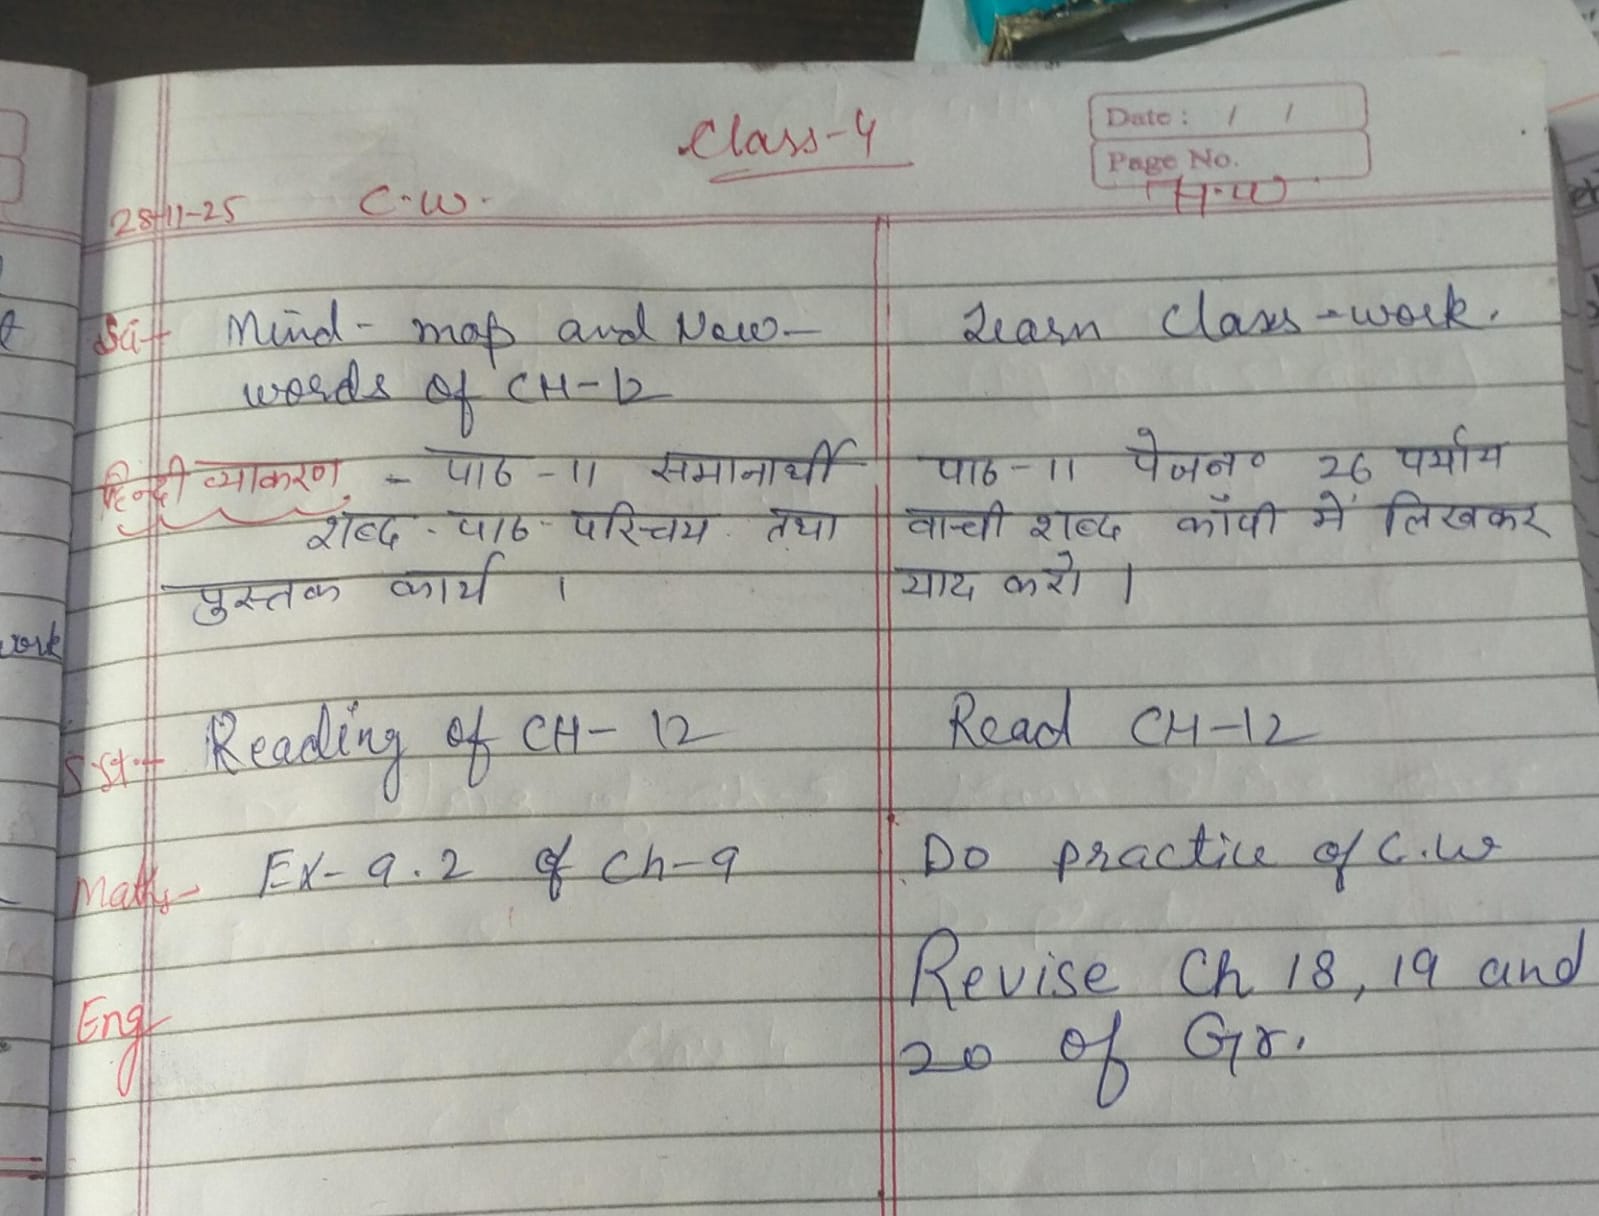 Class-4
Date : / /
Page No.
28-11-25 C.W. H.W
Sci- Mind-map and New- Learn Class-work.
words of CH-12
हिन्दी व्याकरण - पाठ-11 समानार्थी पाठ-11 पेज न० 26 पर्याय
शब्द - पाठ-परिचय तथा वाची शब्द कॉपी में लिखकर
पुस्तक कार्य । याद करो ।
work
S.St- Reading of CH-12 Read CH-12
Maths- Ex-9.2 of Ch-9 Do practice of C.W
Eng- Revise Ch 18, 19 and
20 of Gr.